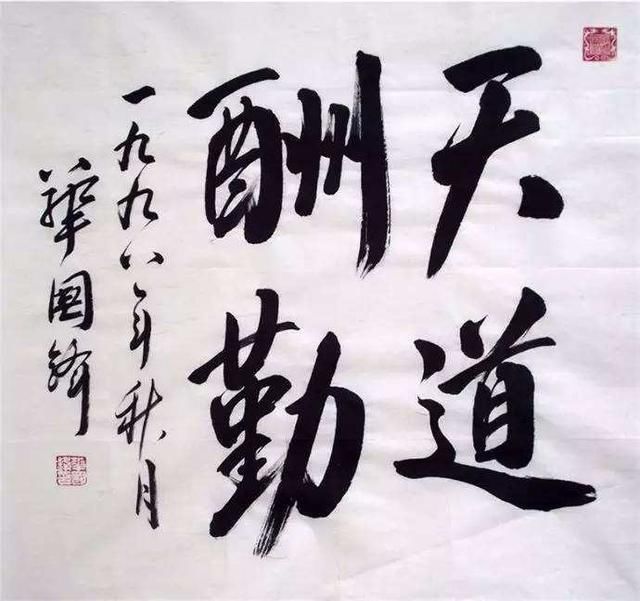 天道
酬勤
一九九八年秋月
華國鋒